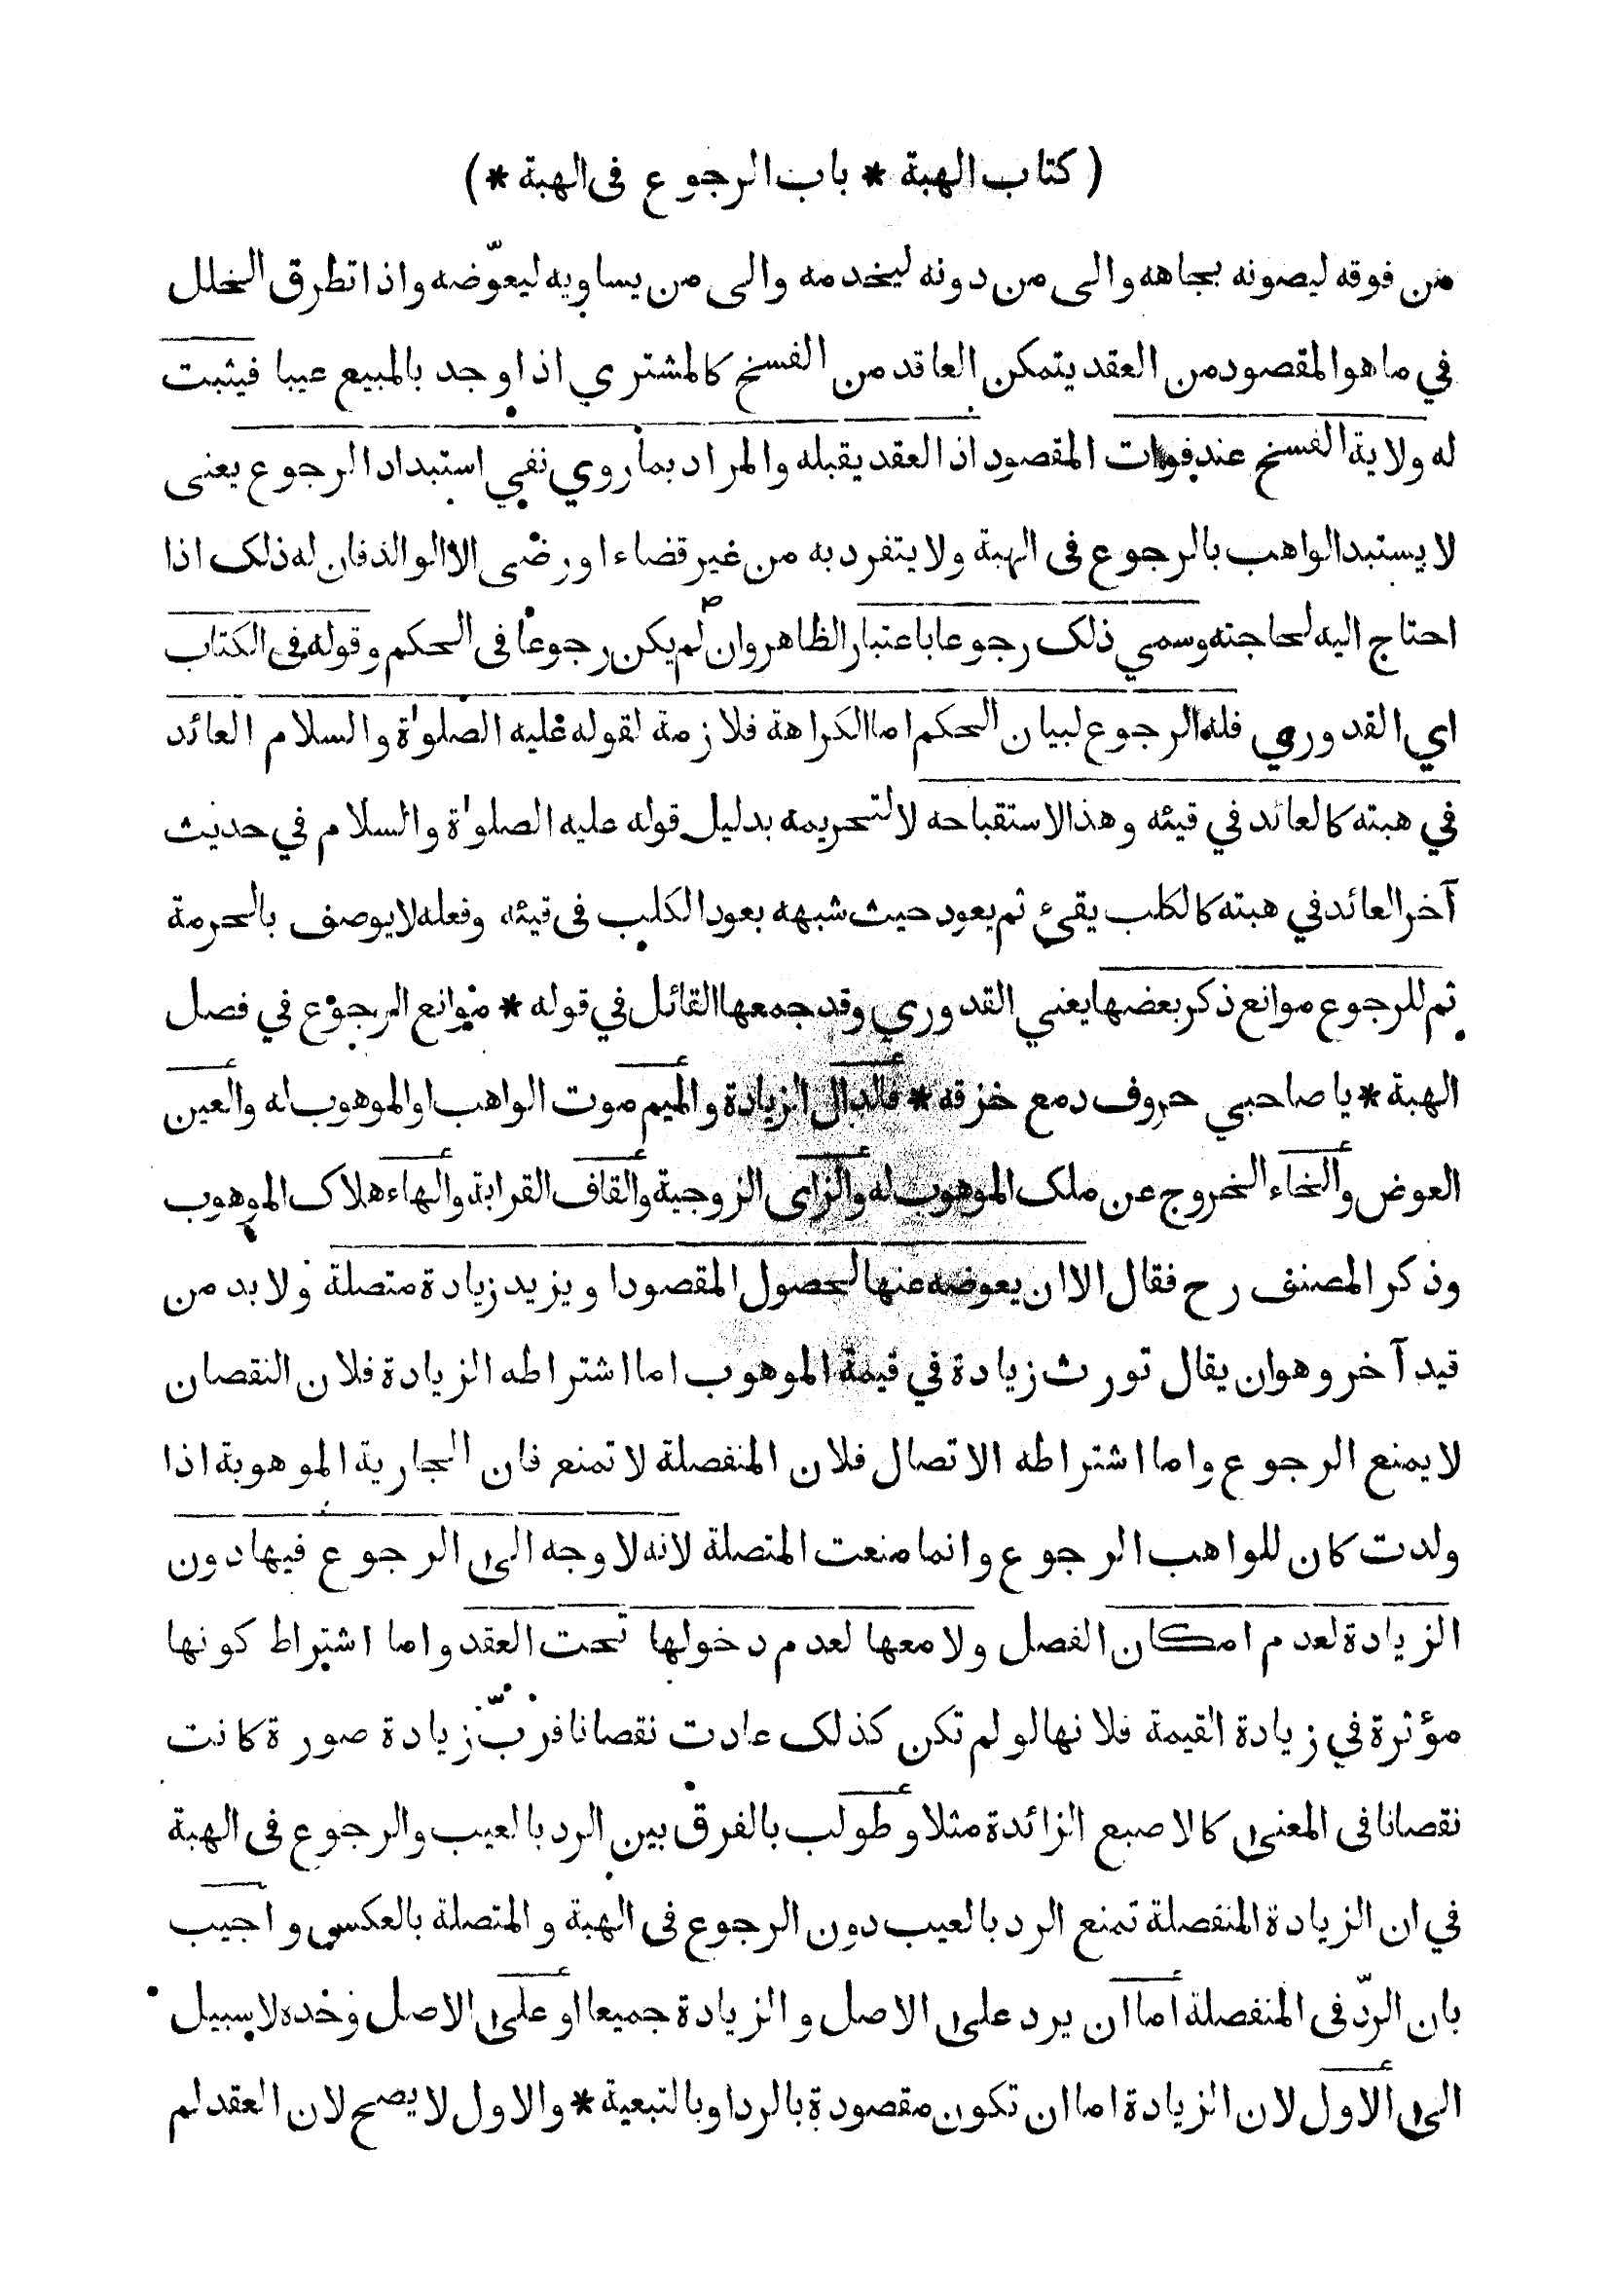 ( كتاب الهبة * باب الرجوع فى الهبة * )
من فوقه ليصونه بجاهه والى من دونه ليخدمه والى من يساويه ليعوّضه واذا تطرق الخلل
في ما هو المقصود من العقد يتمكن العاقد من الفسخ كالمشتري اذا وجد بالمبيع عيبا فيثبت
له ولاية الفسخ عند فوات المقصود اذ العقد يقبله والمراد بما روي نفي استبداد الرجوع يعنى
لا يستبد الواهب بالرجوع فى الهبة ولا يتفرد به من غير قضاء او رضى الا الوالد فان له ذلك اذا
احتاج اليه لحاجته وسمي ذلك رجوعا باعتبار الظاهر وان لم يكن رجوعا فى الحكم وقوله فى الكتاب
اي القدوري فله الرجوع لبيان الحكم اما الكراهة فلازمة لقوله عليه الصلوٰة والسلام العائد
في هبته كالعائد في قيئه وهذا لاستقباحه لا لتحريمه بدليل قوله عليه الصلوٰة والسلام في حديث
آخر العائد في هبته كالكلب يقيء ثم يعود حيث شبهه بعود الكلب فى قيئه وفعله لا يوصف بالحرمة
ثم للرجوع موانع ذكر بعضها يعني القدوري وقد جمعها القائل في قوله * موانع الرجوع في فصل
الهبة * يا صاحبي حروف دمع خزقه * فالدال الزيادة والميم موت الواهب او الموهوب له والعين
العوض والخاء الخروج عن ملك الموهوب له والزاى الزوجية والقاف القرابة والهاء هلاك الموهوب
وذكر المصنف رح فقال الا ان يعوضه عنها لحصول المقصود او يزيد زيادة متصلة ولا بد من
قيد آخر وهو ان يقال تورث زيادة في قيمة الموهوب اما اشتراطه الزيادة فلان النقصان
لا يمنع الرجوع واما اشتراطه الاتصال فلان المنفصلة لا تمنع فان الجارية الموهوبة اذا
ولدت كان للواهب الرجوع وانما منعت المتصلة لانه لا وجه الىٰ الرجوع فيها دون
الزيادة لعدم امكان الفصل ولا معها لعدم دخولها تحت العقد واما اشتراط كونها
مؤثرة في زيادة القيمة فلانها لو لم تكن كذلك عادت نقصانا فربّ زيادة صورة كانت
نقصانا فى المعنىٰ كالاصبع الزائدة مثلا وطولب بالفرق بين الرد بالعيب والرجوع فى الهبة
في ان الزيادة المنفصلة تمنع الرد بالعيب دون الرجوع فى الهبة والمتصلة بالعكس واجيب
بان الردّ فى المنفصلة اما ان يرد علىٰ الاصل والزيادة جميعا او علىٰ الاصل وحده لا سبيل
الىٰ الاول لان الزيادة اما ان تكون مقصودة بالرد او بالتبعية * والاول لا يصح لان العقد لم